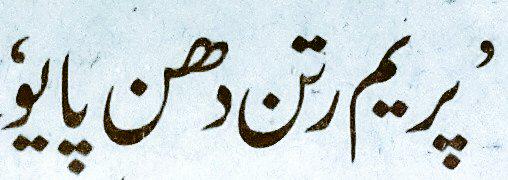 پریم رتن دھن پایو